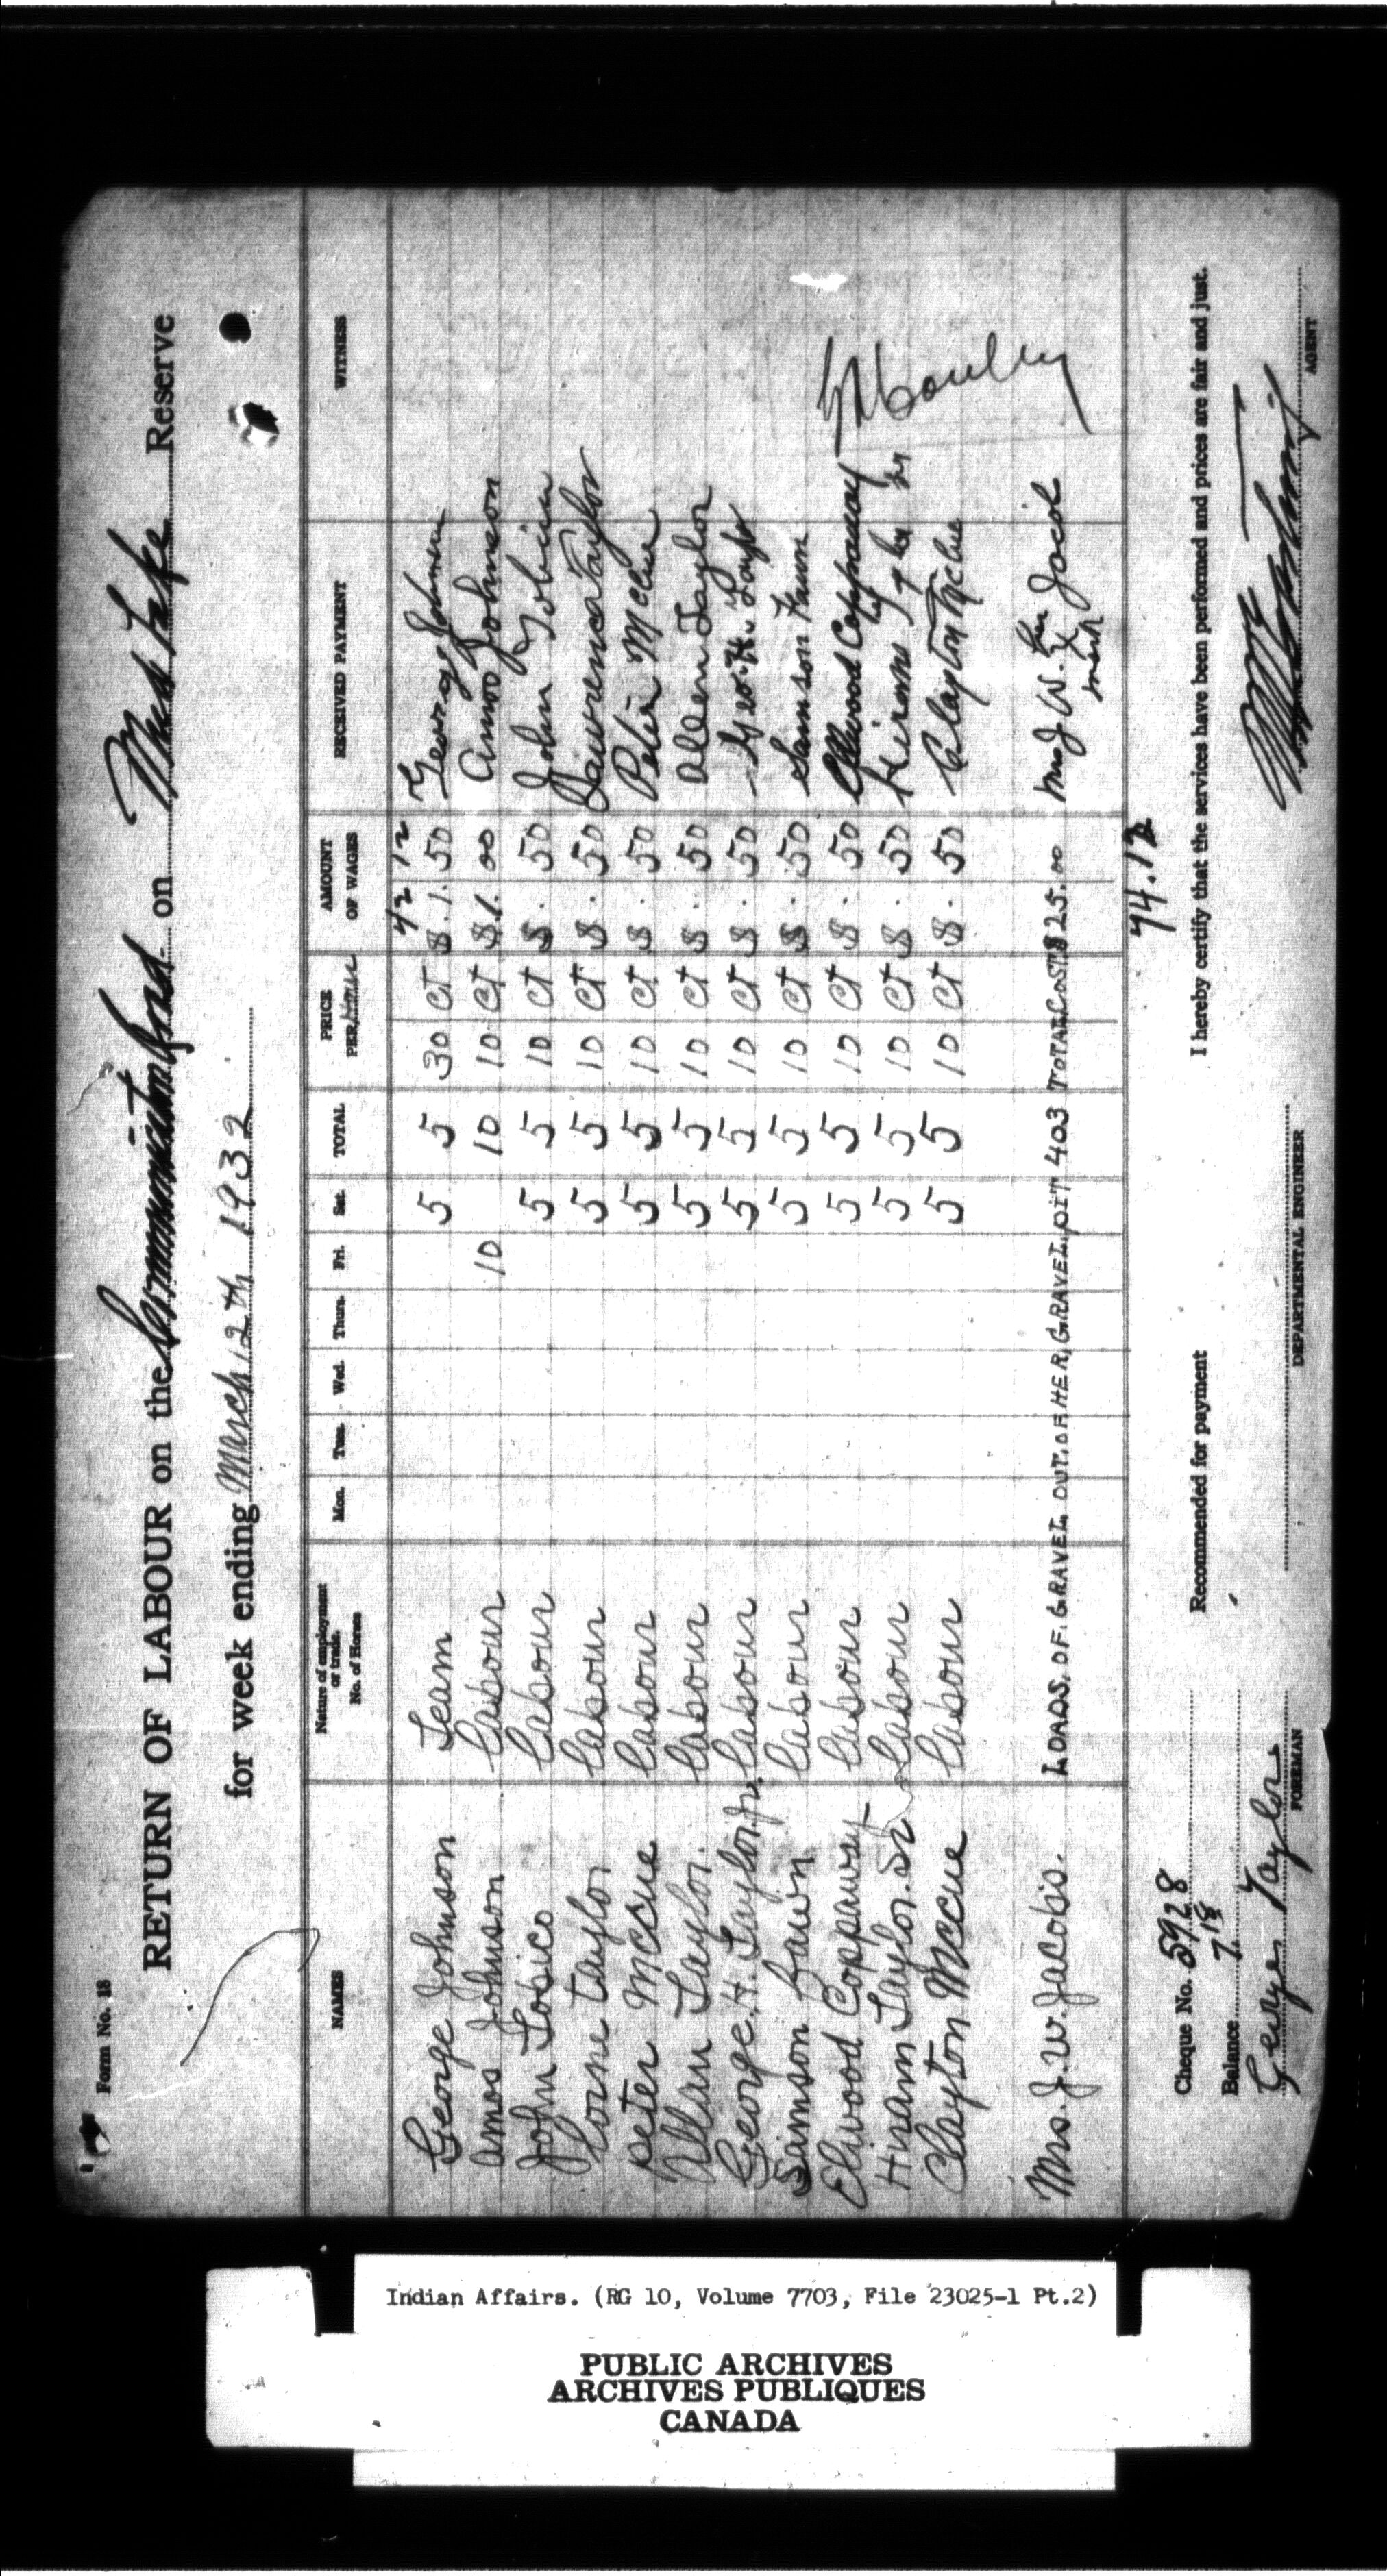 Form No. 18
RETURN OF LABOUR on the on Mud Lake Reserve
for week ending March 12th 1932
NAMES Nature of employment or trade. No. of Horses Mon. Tues. Wed. Thurs. Fri. Sat. TOTAL PRICE PER AMOUNT OF WAGES RECEIVED PAYMENT WITNESS
42 12
George Johnson Team 5 5 30 ct $ 1.50 George Johnson
Amos Johnson Labour 10 10 10 ct $ 1.00 Amos Johnson
John Tobico Labour 5 5 10 ct $ .50 John Tobico
Lorne Taylor Labour 5 5 10 ct $ .50 Lawrence Taylor
Peter McCue Labour 5 5 10 ct $ .50 Peter McCue
Allan Taylor. Labour 5 5 10 ct $ .50 Allen Taylor
George. H. Taylor. Jr. Labour 5 5 10 ct $ .50 Geo. H. Taylor
Samson Fawn Labour 5 5 10 ct $ .50 Samson Fawn
Elwood Coppaway Labour 5 5 10 ct $ .50 Elwood Coppaway
Hiram Taylor. Sr Labour 5 5 10 ct $ .50 Hiram
Clayton McCue Labour 5 5 10 ct $ .50 Clayton McCue
Mrs. J. W. Jacobs. LOADS. OF. GRAVEL OUT. OF HER, GRAVEL, PIT 403 TOTAL COST $ 25.00 Mrs J W. her X mark Jacob
74.12
Cheque No. 5928 Recommended for payment I hereby certify that the services have been performed and prices are fair and just.
Balance 7.18
George Taylor
FOREMAN DEPARTMENTAL ENGINEER AGENT
Indian Affairs. (RG 10, Volume 7703, File 23025-1 Pt.2)
PUBLIC ARCHIVES
ARCHIVES PUBLIQUES
CANADA